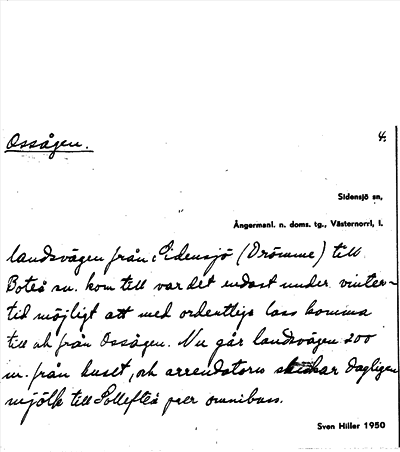 Ossågen.
4.
Sidensjö sn,
Ångermanl. n. doms. tg., Västernorrl, l.
landsvägen från Sidensjö (Drömme) till
Boteå sn. kom till var det endast under vinter-
tid möjligt att med ordentligs lass komma
till och från Ossågen. Nu går landsvägen 200
m. från huset, och arrendatorn skickar dagligen
mjölk till Sollefteå per omnibuss.
Sven Hiller 1950